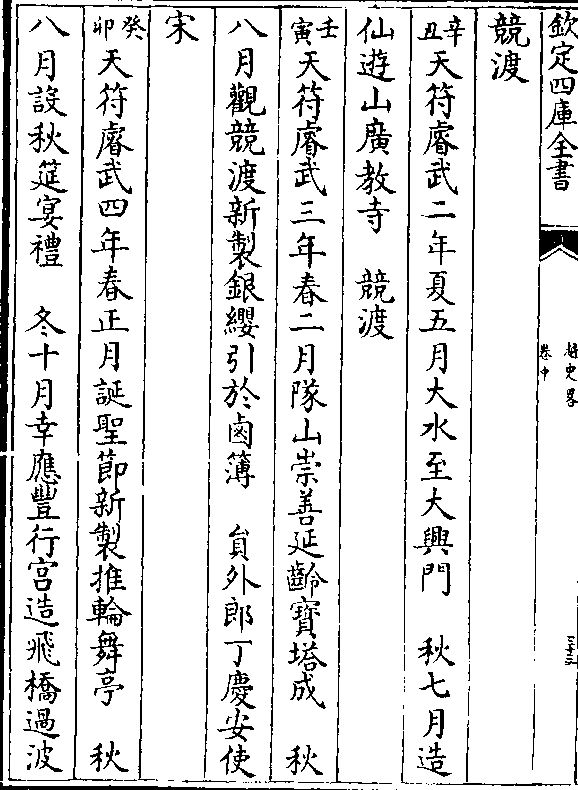 欽定四庫全書
越史略
卷中
三十三
競渡
辛丑天符睿武二年夏五月大水至大興門 秋七月造
仙遊山廣教寺 競渡
壬寅天符睿武三年春二月隊山崇善延齡寶塔成 秋
八月觀競渡新製銀纓引於鹵簿 貟外郎丁慶安使
宋
癸卯天符睿武四年春正月誕聖節新製推輪舞亭 秋
八月設秋筵宴禮 冬十月幸應豐行宫造飛橋過波